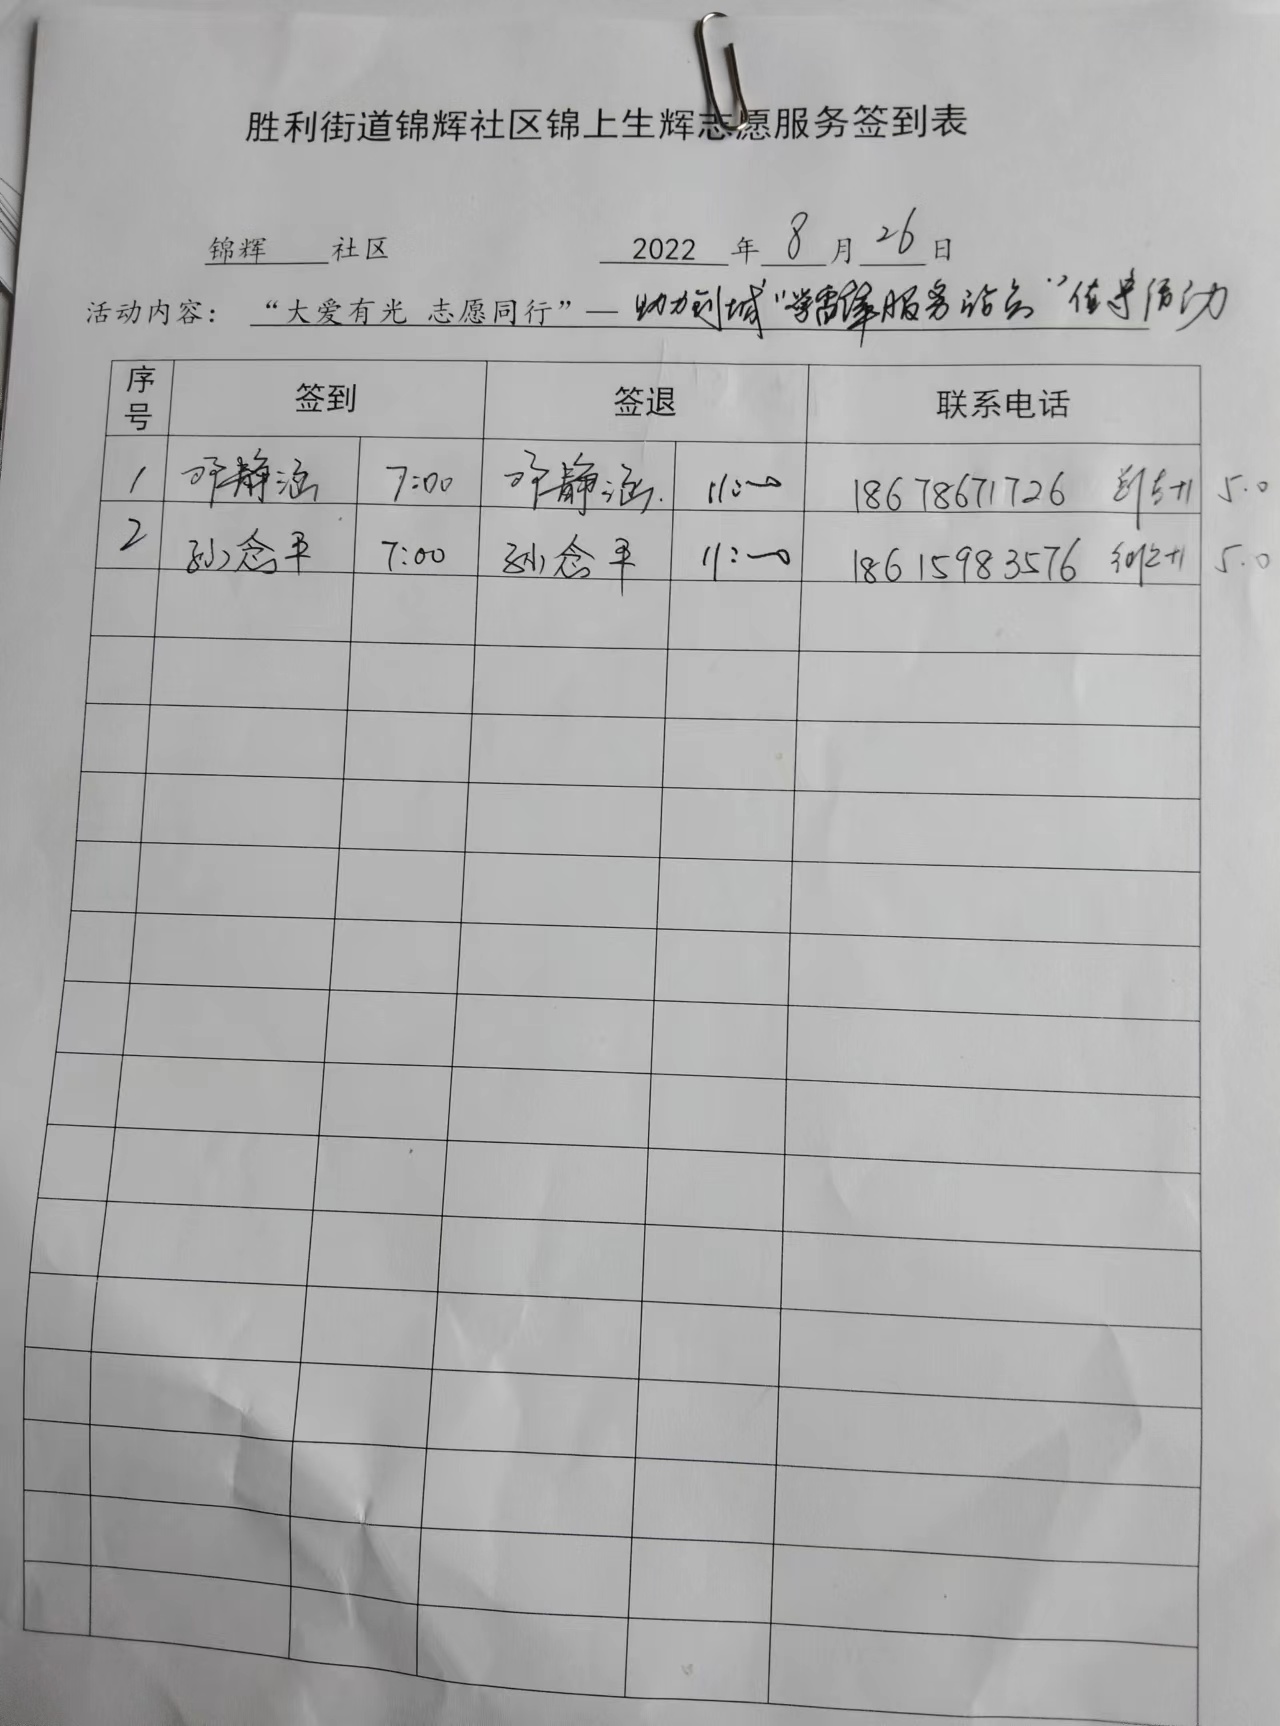 胜利街道锦辉社区锦上生辉志愿服务签到表
锦辉 社区 2022 年 8 月 26 日
活动内容：“大爱有光 志愿同行”— 助力创城“学雷锋服务站点”值守活动
序号 签到 签退 联系电话
1 静涵 7:00 静涵 11:00 18678671726 5.0
2 孙念平 7:00 孙念平 11:00 18615983576 5.0